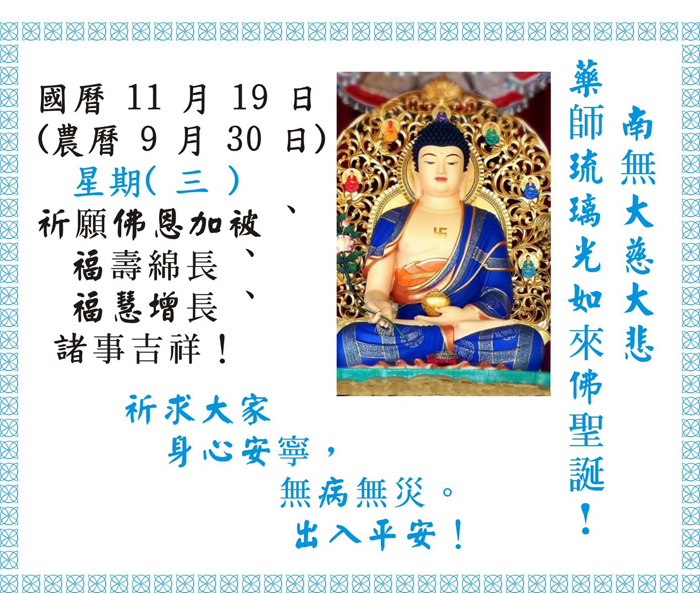 南無大慈大悲
藥師琉璃光如來佛聖誕！
國曆 11 月 19 日
(農曆 9 月 30 日)
星期( 三 )
祈願佛恩加被、
福壽綿長、
福慧增長、
諸事吉祥！
祈求大家
身心安寧，
無病無災。
出入平安！